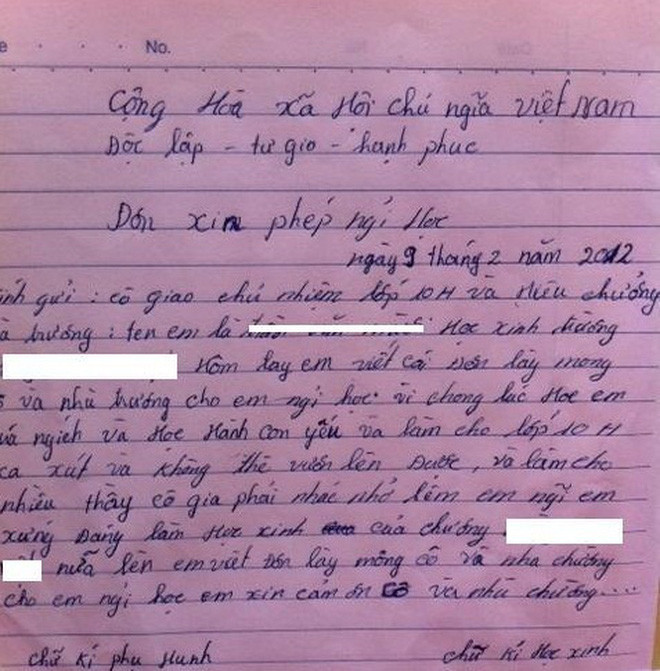 No.
Cộng Hoà xã Hôi chủ ngĩa việt Nam
Độc lập - tư gio - hạnh phuc
Đơn xin phép ngỉ Học
ngày 9 tháng 2 năm 2012
ính gửi : cô giao chủ nhiệm lớp 10 H và Hiêu chưởng
à trường : ten em là Học xinh trường
Hôm lay em viết cái Đơn lày mong
và nhù trường cho em ngỉ học vì chong luc Hoc em
uá ngich và Học Hành con yếu và làm cho lớp 10 H
ca xút và không thê vươn lên Được, và làm cho
nhiều thầy cô gia phải nhăc nhở lêm em ngĩ em
xưng Đáng làm Học xinh của chương
nưã lên em viết Đơn lày mông cô và nha chường
cho em ngỉ học em xin cảm ơn cô và nhù chường....
chữ kí phụ Huynh
chữ kí Học xinh